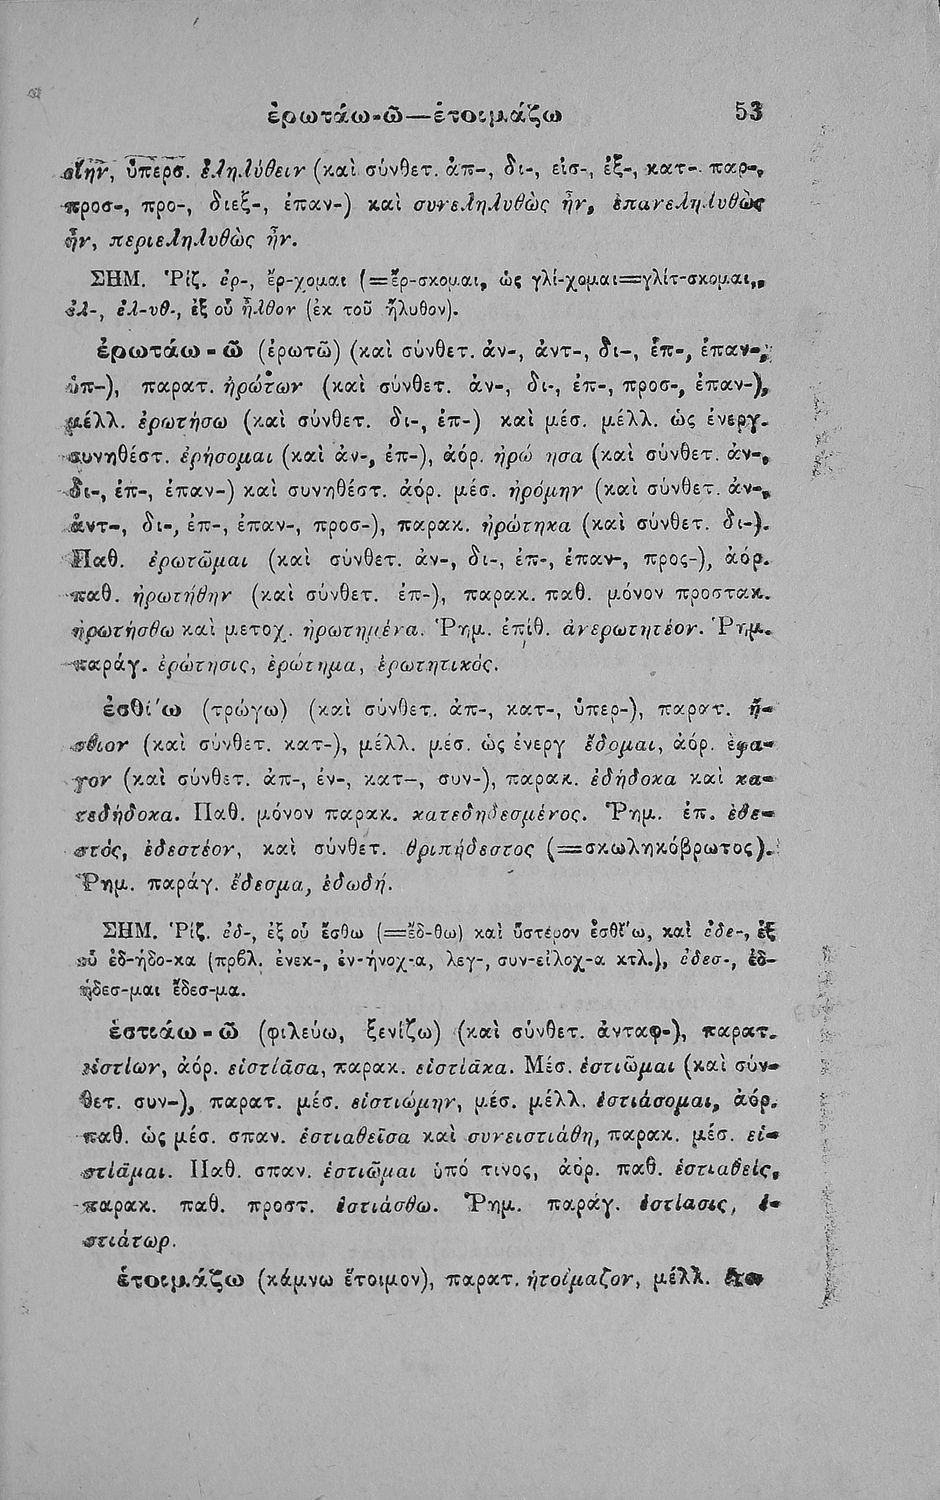 ἐρωτάω-ῶ—ἑτοιμάζω 53
οίην, ὑπερσ. ἐληλύθειν (καὶ σύνθετ. ἀπ-, δι-, εἰσ-, ἐξ-, κατ-. παρ-,
προσ-, προ-, διεξ-, ἐπαν-) καὶ συνεληλυθὼς ἦν, ἐπανεληλυθὼς
ἦν, περιεληλυθὼς ἦν.
ΣΗΜ. Ῥίζ. ἐρ-, ἔρ-χομαι (=ἔρ-σκομαι, ὡς γλί-χομαι=γλίτ-σκομαι,
ἐλ-, ἐλ-υθ-, ἐξ οὗ ἦλθον (ἐκ τοῦ ἤλυθον).
ἐρωτάω-ῶ (ἐρωτῶ) (καὶ σύνθετ. ἀν-, ἀντ-, δι-, ἐπ-, ἐπαν-,
ὑπ-), παρατ. ἠρώτων (καὶ σύνθετ. ἀν-, δι-, ἐπ-, προσ-, ἐπαν-),
μέλλ. ἐρωτήσω (καὶ σύνθετ. δι-, ἐπ-) καὶ μέσ. μέλλ. ὡς ἐνεργ.
συνηθέστ. ἐρήσομαι (καὶ ἀν-, ἐπ-), ἀόρ. ἠρώ ησα (καὶ σύνθετ. ἀν-,
δι-, ἐπ-, ἐπαν-) καὶ συνηθέστ. ἀόρ. μέσ. ἠρόμην (καὶ σύνθετ. ἀν-,
ἀντ-, δι-, ἐπ-, ἐπαν-, προσ-), παρακ. ἠρώτηκα (καὶ σύνθετ. δι-).
Παθ. ἐρωτῶμαι (καὶ σύνθετ. ἀν-, δι-, ἐπ-, ἐπαν-, προς-), ἀόρ.
παθ. ἠρωτήθην (καὶ σύνθετ. ἐπ-), παρακ. παθ. μόνον προστακ.
ἠρωτήσθω καὶ μετοχ. ἠρωτημένα. Ῥημ. ἐπίθ. ἀνερωτητέον. Ῥημ.
παράγ. ἐρώτησις, ἐρώτημα, ἐρωτητικός.
ἐσθί'ω (τρώγω) (καὶ σύνθετ. ἀπ-, κατ-, ὑπερ-), παρατ. ἤ-
σθιον (καὶ σύνθετ. κατ-), μέλλ. μέσ. ὡς ἐνεργ ἔδομαι, ἀόρ. ἔφα-
γον (καὶ σύνθετ. ἀπ-, ἐν-, κατ-, συν-), παρακ. ἐδήδοκα καὶ κα-
τεδήδοκα. Παθ. μόνον παρακ. κατεδηδεσμένος. Ῥημ. ἐπ. ἐδε-
στός, ἐδεστέον, καὶ σύνθετ. θριπήδεστος (=σκωληκόβρωτος).
Ῥημ. παράγ. ἔδεσμα, ἐδωδή.
ΣΗΜ. Ῥίζ. ἐδ-, ἐξ οὗ ἔσθω (=ἔδ-θω) καὶ ὕστερον ἐσθί'ω, καὶ ἐδε-, ἐξ
οὗ ἐδ-ήδο-κα (πρβλ. ἐνεκ-, ἐν-ήνοχ-α, λεγ-, συν-είλοχ-α κτλ.), ἐδεσ-, ἐδ-
ήδεσ-μαι ἔδεσ-μα.
ἑστιάω-ῶ (φιλεύω, ξενίζω) (καὶ σύνθετ. ἀνταφ-), παρατ.
εἱστίων, ἀόρ. εἱστίασα, παρακ. εἱστίακα. Μέσ. ἑστιῶμαι (καὶ σύν-
θετ. συν-), παρατ. μέσ. εἱστιώμην, μέσ. μέλλ. ἑστιάσομαι, ἀόρ.
παθ. ὡς μέσ. σπαν. ἑστιαθεῖσα καὶ συνειστιάθη, παρακ. μέσ. εἱ-
στίαμαι. Παθ. σπαν. ἑστιῶμαι ὑπό τινος, ἀόρ. παθ. ἑστιαθείς,
παρακ. παθ. προστ. ἑστιάσθω. Ῥημ. παράγ. ἑστίασις, ἑ-
στιάτωρ.
ἑτοιμάζω (κάμνω ἕτοιμον), παρατ. ἡτοίμαζον, μέλλ.